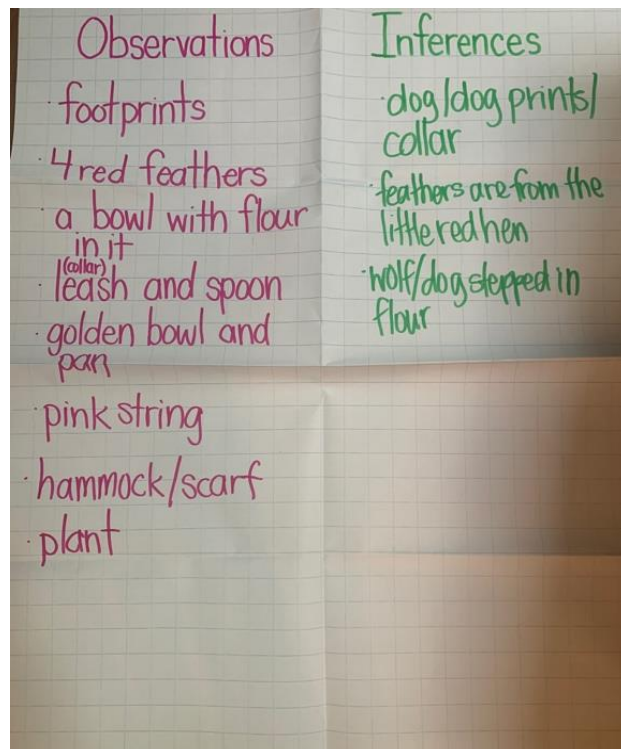 Observations
· footprints
· 4 red feathers
· a bowl with flour
in it
(collar)
· leash and spoon
· golden bowl and
pan
· pink string
· hammock/scarf
· plant
Inferences
· dog/dog prints/
collar
· feathers are from the
little red hen
· wolf/dog stepped in
flour